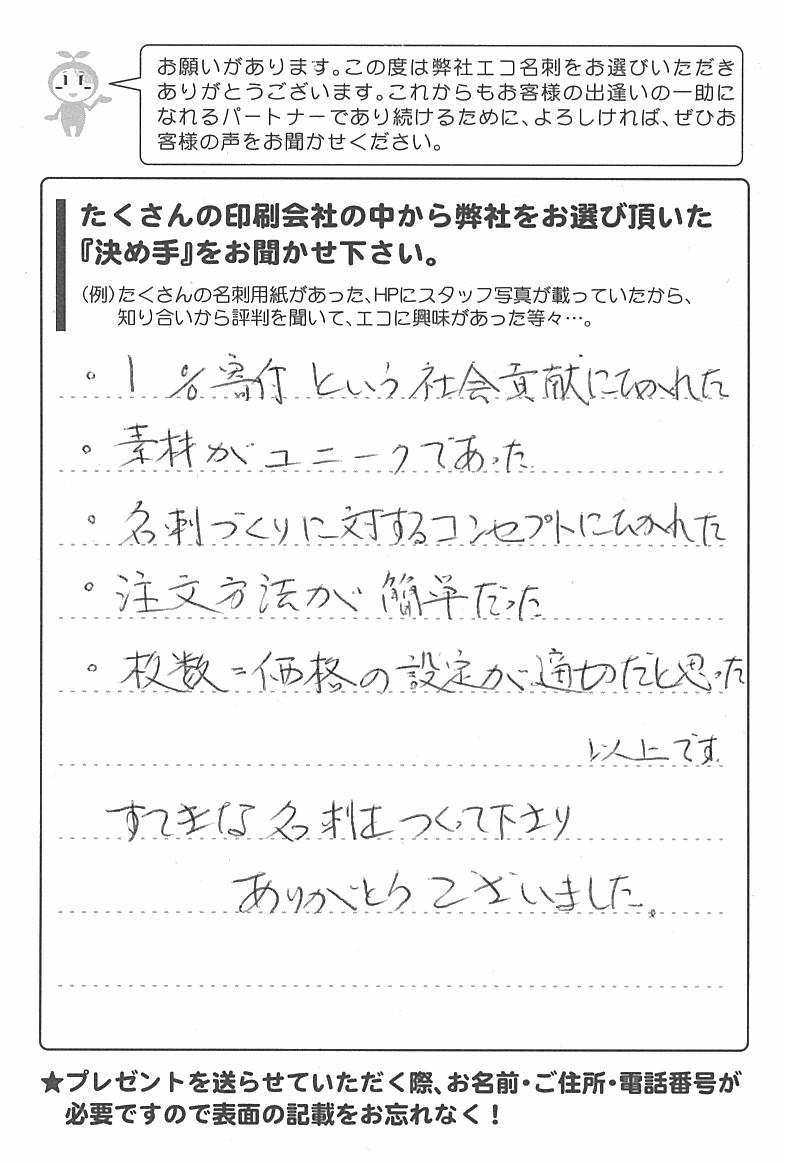 お願いがあります。この度は弊社エコ名刺をお選びいただき
ありがとうございます。これからもお客様の出逢いの一助に
なれるパートナーであり続けるために、よろしければ、ぜひお
客様の声をお聞かせください。
たくさんの印刷会社の中から弊社をお選び頂いた
『決め手』をお聞かせ下さい。
(例)たくさんの名刺用紙があった、HPにスタッフ写真が載っていたから、
知り合いから評判を聞いて、エコに興味があった等々…。
。1%寄付という社会貢献にひかれた
。素材がユニークであった
。名刺づくりに対するコンセプトにひかれた
。注文方法が簡単だった
。枚数=価格の設定が適切だと思った
以上です
すてきな名刺をつくって下さり
ありがとうございました。
★プレゼントを送らせていただく際、お名前・ご住所・電話番号が
必要ですので表面の記載をお忘れなく!